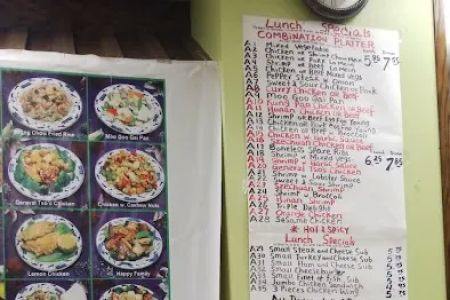 Lunch Specials
COMBINATION PLATTER
A1 Mixed Vegetable
A4 Shrimp or Pork Lo Mein
A5 Chicken or Beef w. Mixed Vegs
A6 Pepper Steak w. Onion
A7 Sweet & Sour Chicken or Pork
A8 Curry Chicken or Beef
A9 Moo Goo Gai Pan
A10 Kung Pao Chicken or Beef
A11 Hunan Chicken or Beef
A12 Shrimp or
A13 Chicken or Pork Egg Foo Young
A14 Chicken or Beef w. Broccoli
A15 Chicken w. Garlic Sauce
A16 Szechuan Chicken or Beef
A17 Boneless Spare Ribs
A18 Shrimp w. Mixed Vegs
A19 Shrimp w. Garlic Sauce
A20 General Tso's Chicken
A21 Shrimp w. Lobster Sauce
A22 Sweet & Sour Shrimp
A23 Szechuan Shrimp
A24 Shrimp w. Broccoli
A25 Hunan Shrimp
A26 Triple Delight
A27 Orange Chicken
A28 Sesame Chicken
5.95
7.95
6.25
7.95
Hot & Spicy
Lunch Specials
A29 Small Steak and Cheese Sub
A30 Small Turkey and Cheese Sub
A31 Small Ham and Cheese Sub
A32 Small Cheeseburger
A33 Small Fillet of Fish Sub
A34 Jumbo Chicken Sub
A35 3 Pieces Chicken Wing
Young Chow Fried Rice
Moo Goo Gai Pan
General Tso's Chicken
Chicken w. Cashew Nuts
Lemon Chicken
Happy Family